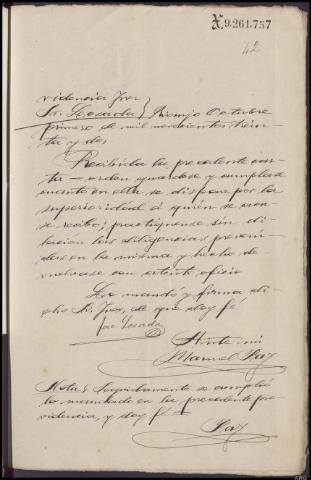 N.9.261.757
42
videncia Juez
Sr. Losada } Riomjo Octubre
primero de mil novecientos trein-
ta y dos
Recibida la precedente car-
ta-orden guardese y cumplase
cuanto en ella se dispone por la
superioridad á quién se acu-
se recibo; practiquense sin di-
lacion las diligencias preveni-
das en la misma y hecho de-
vuelvase con atento oficio
Lo mandó y firma di-
cho Sr. Juez, de que doy fé
Jose Losada
Ante mi
Manuel Paz
Nota } Seguidamente se cumplió
lo mandado en la precedente pro-
videncia, y doy fé
Paz